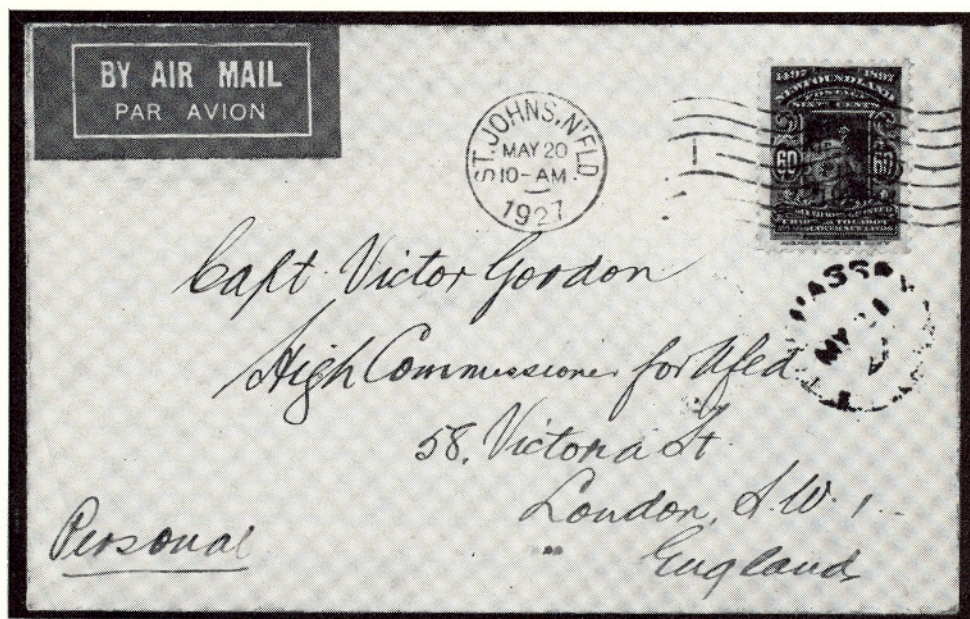 BY AIR MAIL
PAR AVION
ST. JOHNS, N'FLD.
MAY 20
10-AM
1927
1497 1897
NEWFOUNDLAND
POSTAGE
SIXTY CENTS
60 60
Capt Victor Gordon
High Commissioner for Nfld
58, Victoria St
London, S.W. 1.
England
Personal